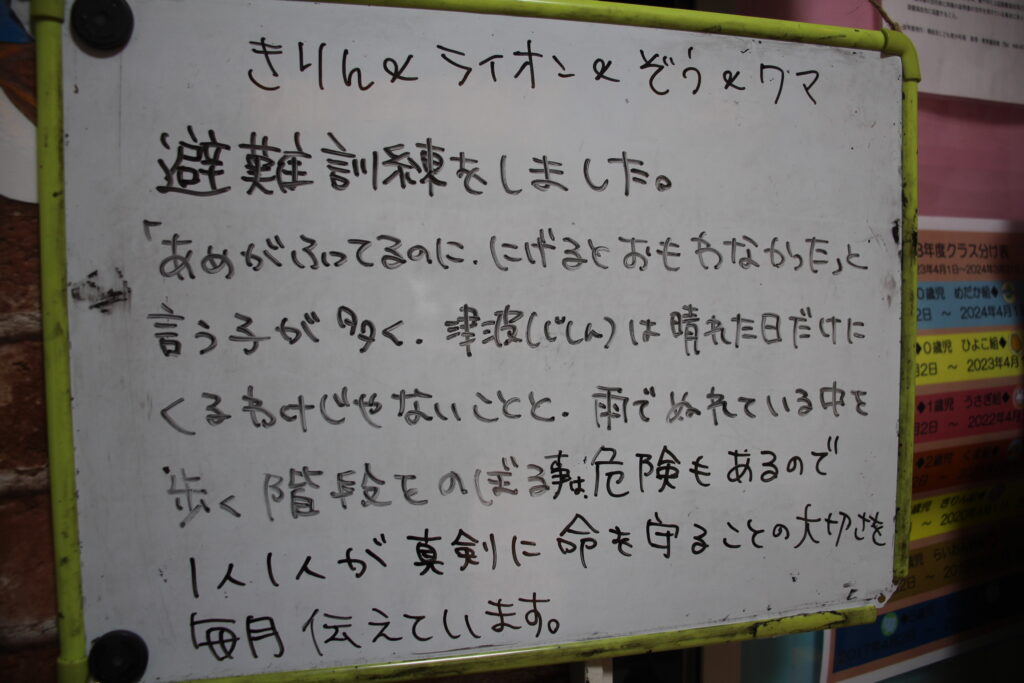 きりん&ライオン&ぞう&クマ
避難訓練をしました。
「あめがふってるのに、にげるとおもわなかった」と
言う子が多く、津波(じしん)は晴れた日だけに
くるわけじゃないことと、雨でぬれている中を
歩く階段をのぼる事は危険もあるので
1人1人が真剣に命を守ることの大切さを
毎月伝えています。
3年度クラス分け表
23年4月1日~2024年3月
0歳児 めだか組◆
2日 ~ 2024年4月1
◆0歳児 ひよこ組
2日 ~ 2023年4月
◆1歳児 うさぎ組
2日 ~ 2022年4
◆2歳児